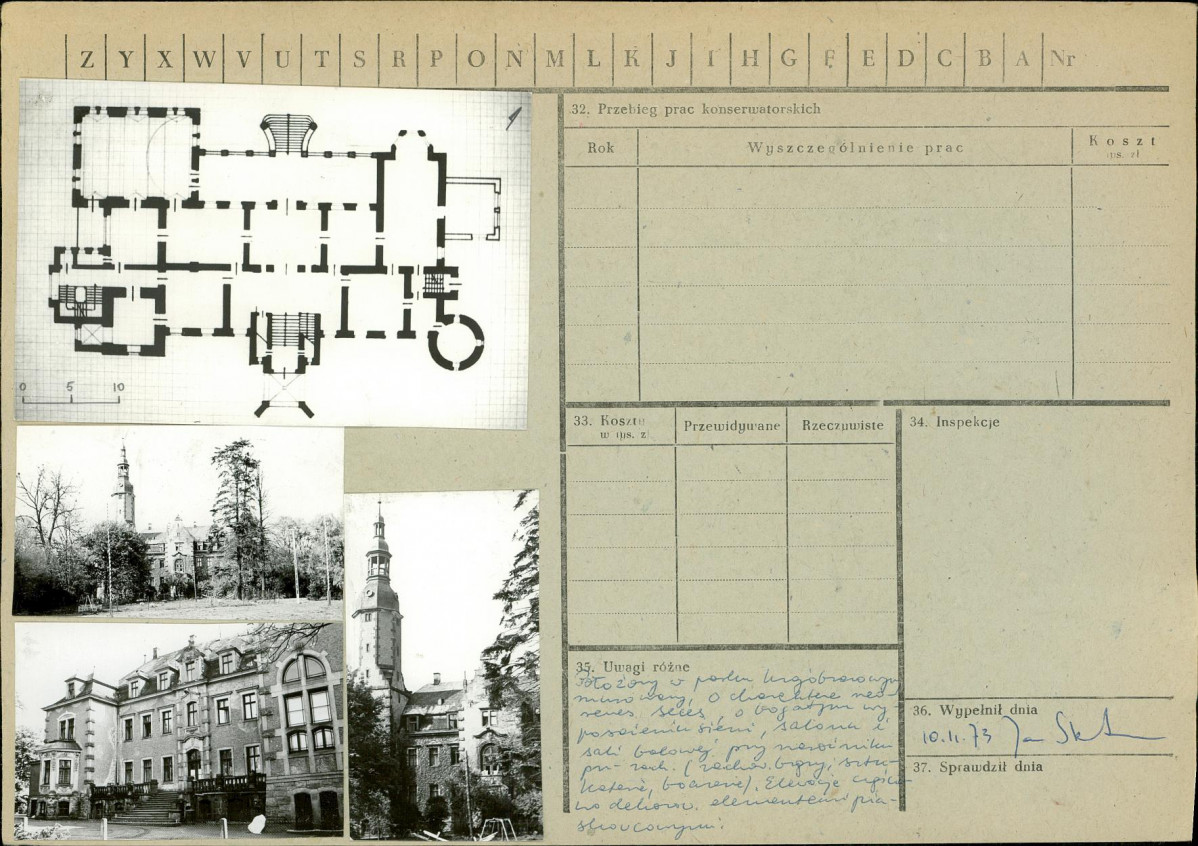 Z Y X W V U T S R P O N M L K J I H G F E D C B A Nr
0 5 10
32. Przebieg prac konserwatorskich
Rok Wyszczególnienie prac Koszt
tys. zł
33. Koszty Przewidywane Rzeczywiste
w tys. z
34. Inspekcje
35. Uwagi różne
Położony w parku krajobrazowym
murowany, o charakterze neo-
renes. seces. o bogatym wy-
posażeniu sieni, salonu i
sali balowej, przy narożniku
zach. (zachow.
boazerie). Elewacje
no dekorow. elementami pia-
skowcowymi.
36. Wypełnił dnia
10.11.73
37. Sprawdził dnia